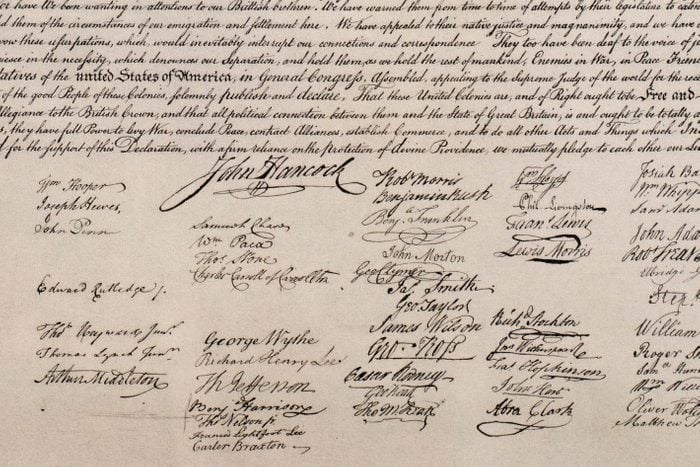 have We been wanting in attentions to our Brittish brethren. We have warned them from time to time of attempts by their legislature to
them of the circumstances of our emigration and settlement here. We have appealed to their native justice and magnanimity, and we have
these usurpations, which, would inevitably interrupt our connections and correspondence They too have been deaf to the voice of
in the necessity, which denounces our Separation, and hold them, as we hold the rest of mankind, Enemies in War, in Peace
of the united States of America, in General Congress, Assembled, appealing to the Supreme Judge of the world for the
of the good People of these Colonies, solemnly publish and declare, That these United Colonies are, and of Right ought to be Free and
Allegiance to the British Crown, and that all political connection between them and the State of Great Britain, is and ought to be totally
they have full Power to levy War, conclude Peace, contract Alliances, establish Commerce, and to do all other Acts and Things which
for the support of this Declaration, with a firm reliance on the protection of divine Providence, we mutually pledge to each other our
Wm Hooper
Joseph Hewes,
John Penn
Edward Rutledge /.
Thos Heyward Junr.
Thomas Lynch Junr.
Arthur Middleton
John Hancock
Samuel Chase
Wm Paca
Thos Stone
Charles Carroll of Carrollton
George Wythe
Richard Henry Lee
Th Jefferson
Benj Harrison
Thos Nelson jr
Francis Lightfoot Lee
Carter Braxton
Robt Morris
Benjamin Rush
Benja Franklin
John Morton
Geo Clymer
Jas Smith
Geo Taylor
James Wilson
Geo Ross
Caesar Rodney
Geo Read
Tho M:Kean
Wm Floyd
Phil. Livingston
Frans Lewis
Lewis Morris
Richd Stockton
Jno Witherspoon
Fras Hopkinson
John Hart
Abra Clark
Josiah
Wm
John
Robt
Elbridge
Step
William
Roger
Wm
Oliver
Matthew